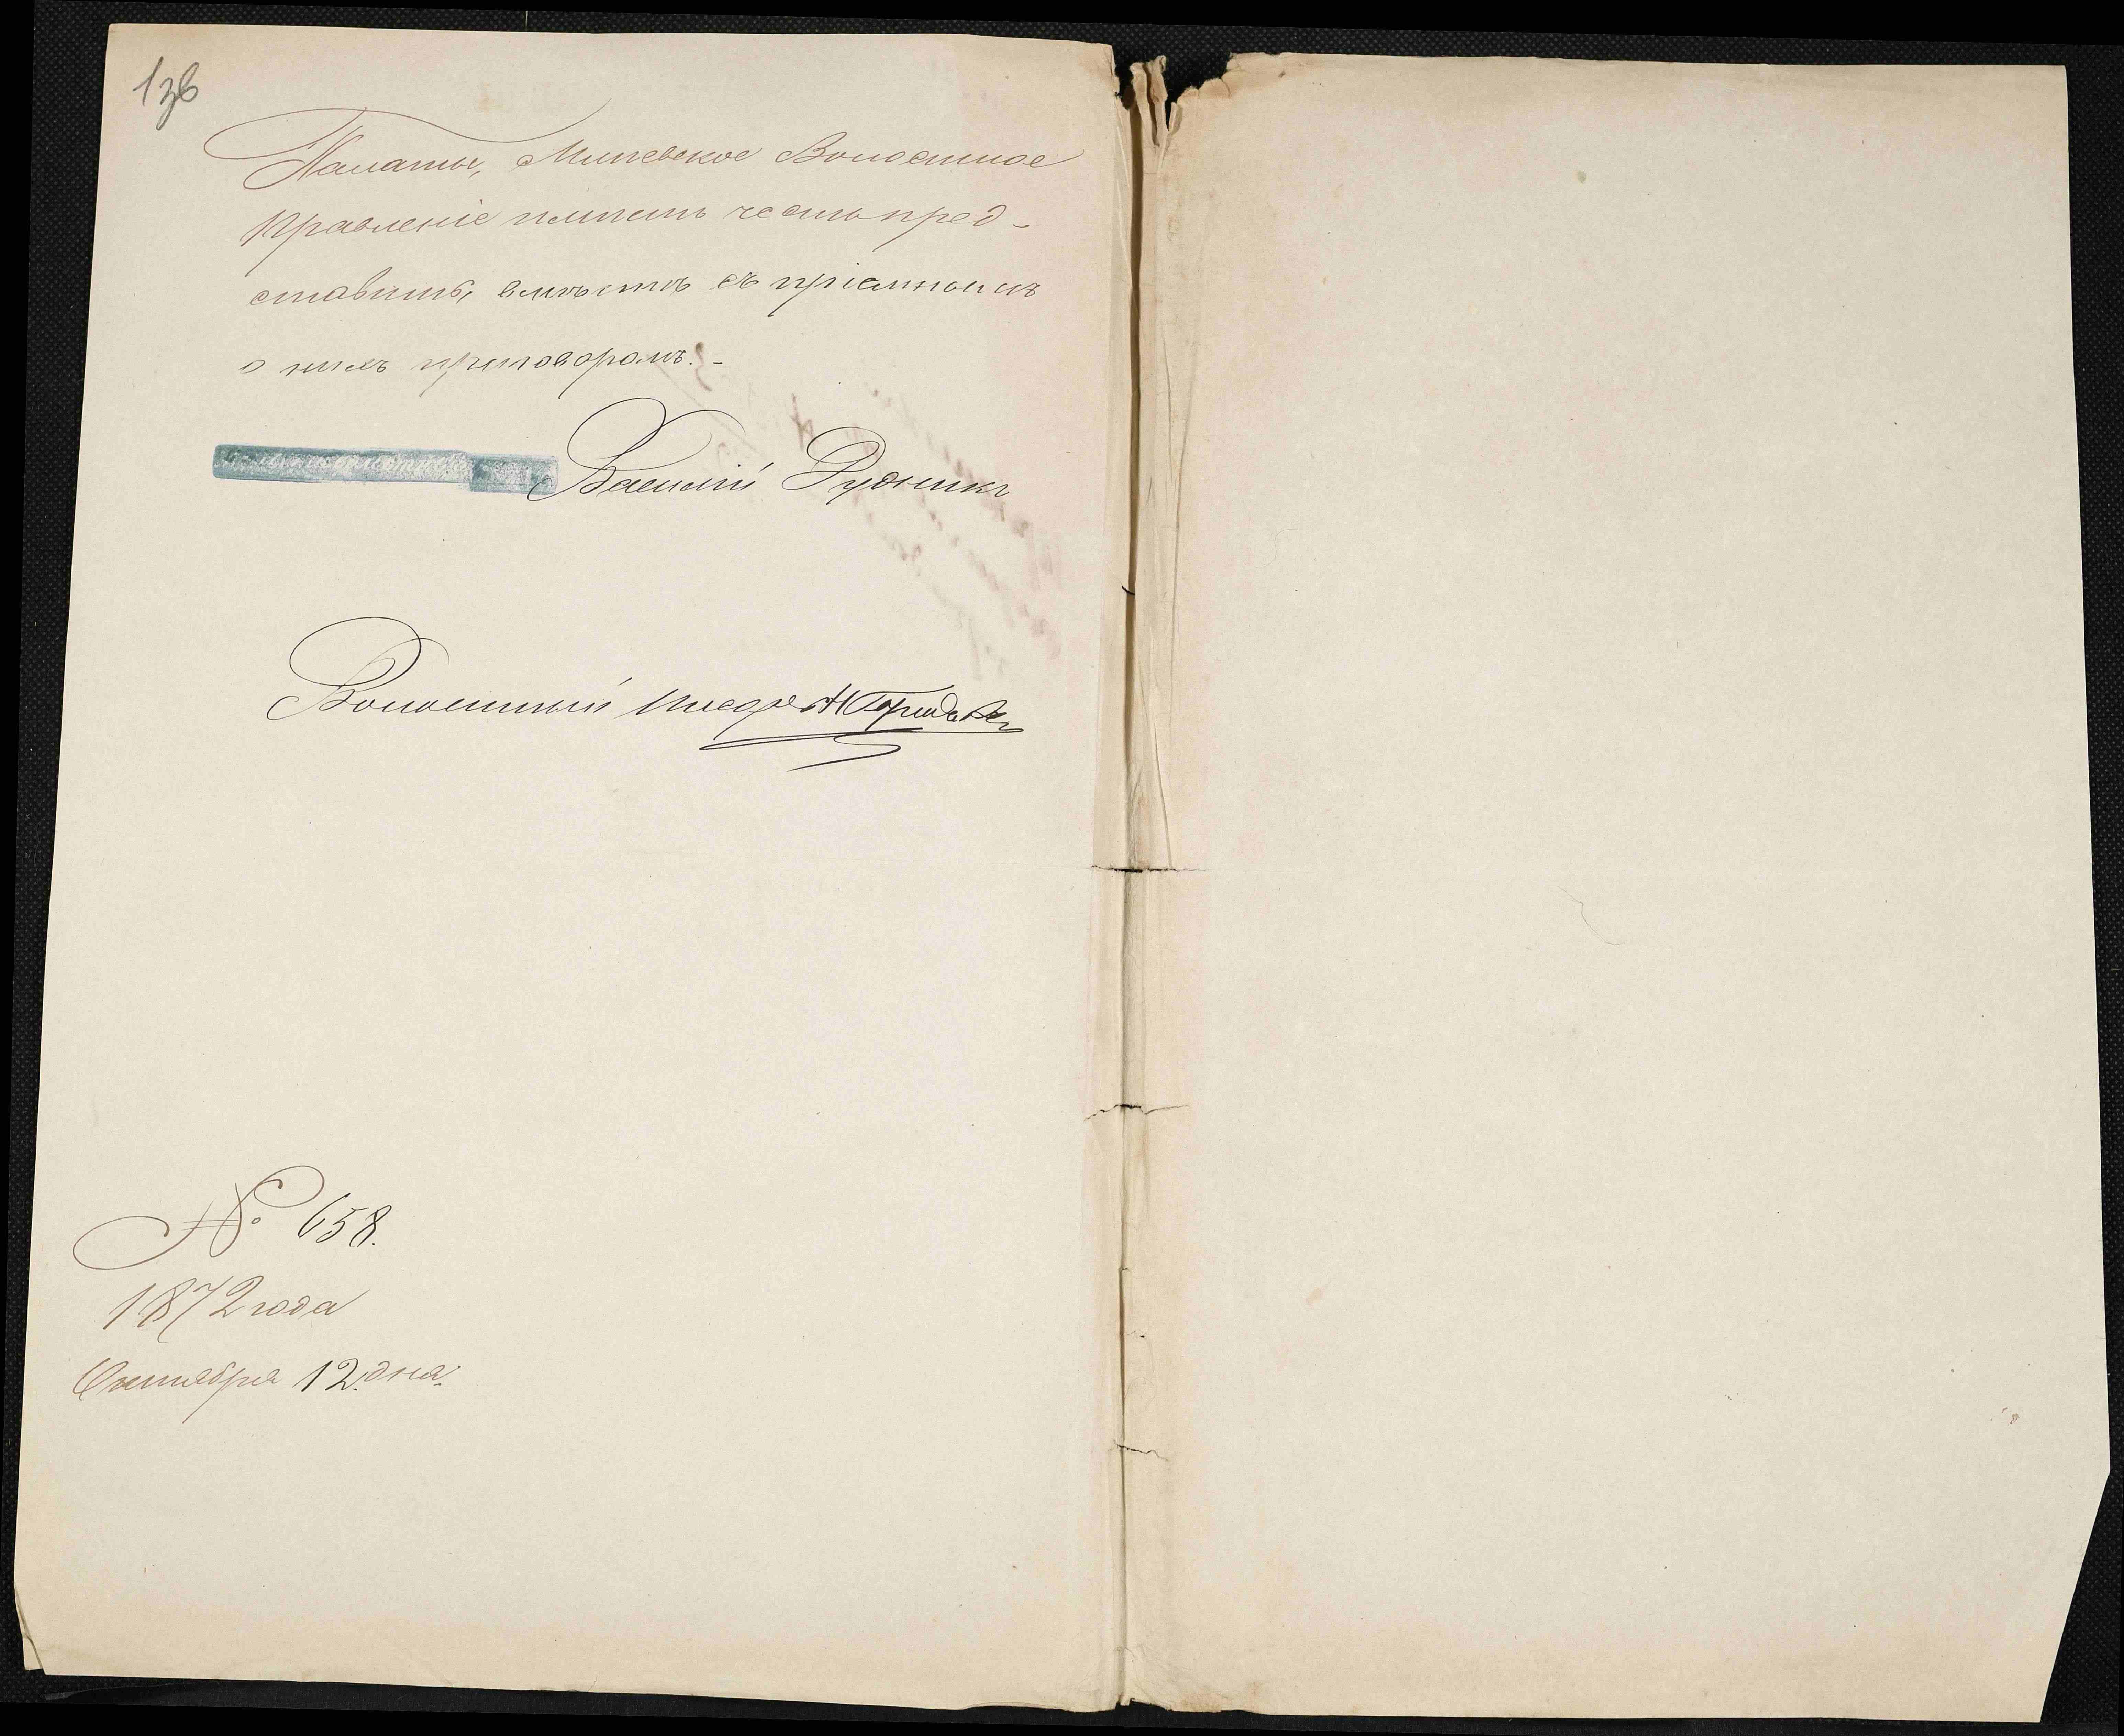 136
Палаты, Милевское Волостное
Правленіе имѣетъ честь пред-
ставить, вмѣстѣ съ пріемнымъ
о нихъ приговоромъ.-
Василій Рудникъ
Волостный Писарь
№ 658.
1872 года
Октября 12 дня.